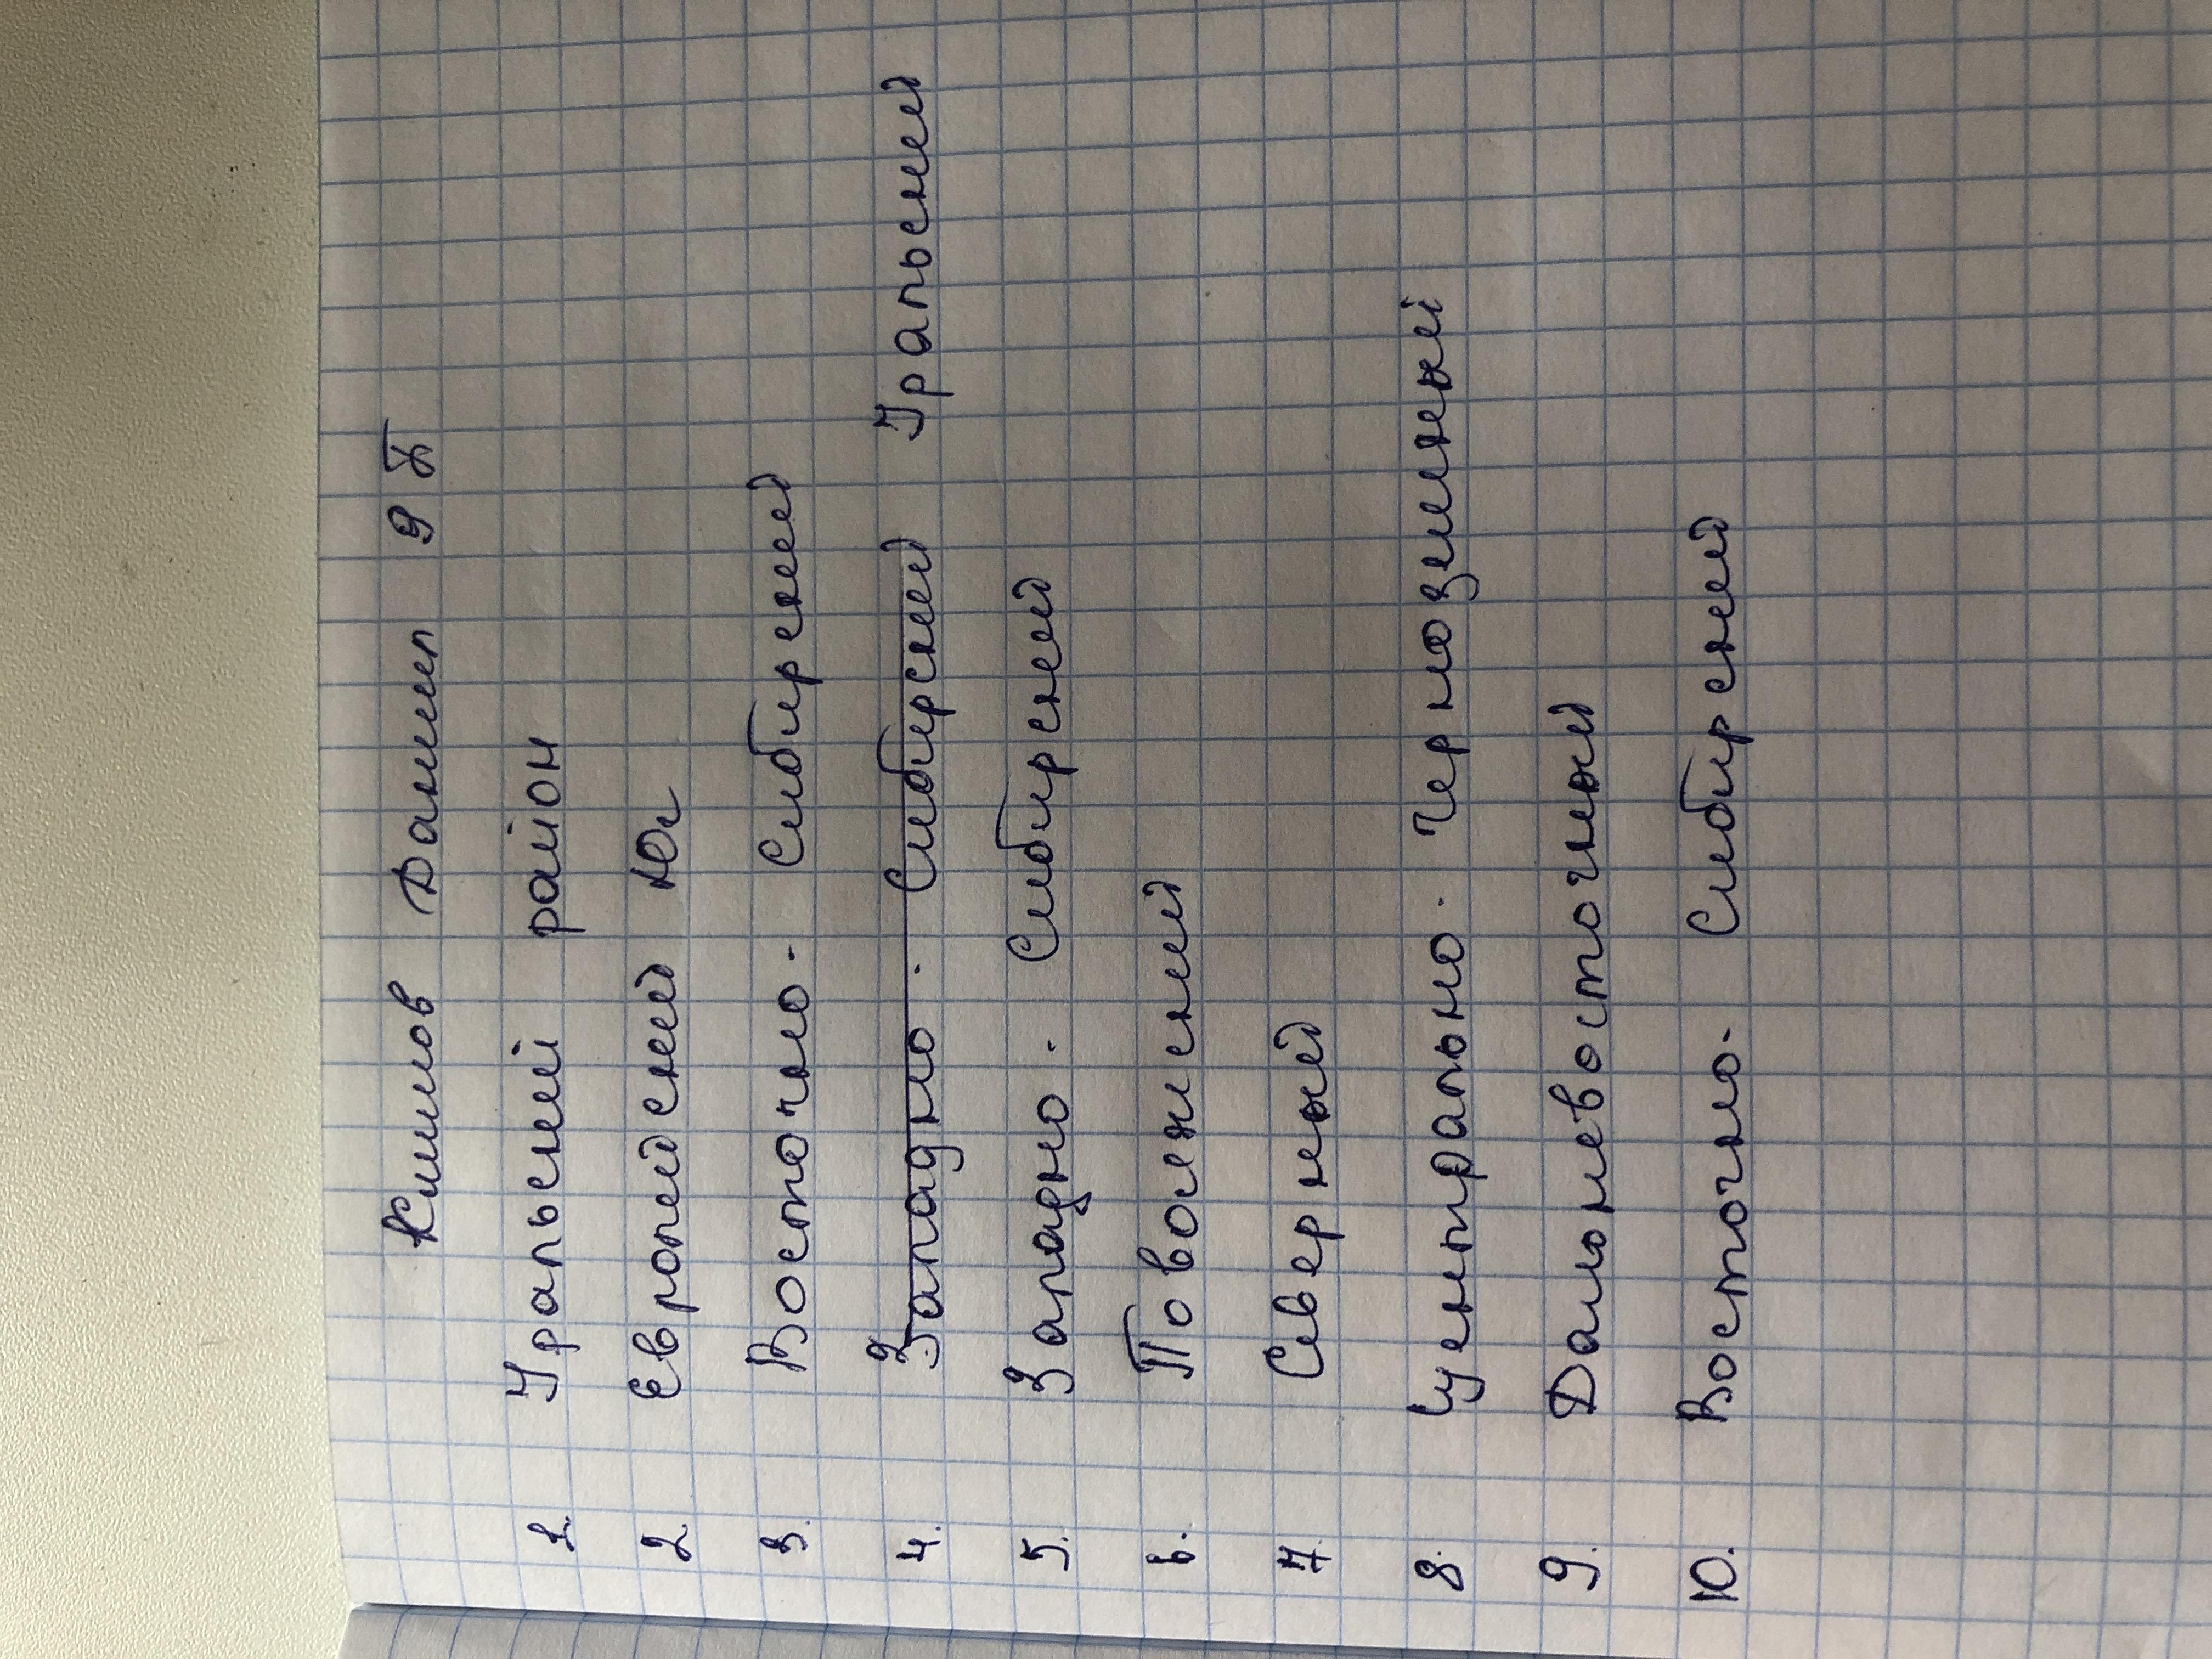 Климов Даниил 9 Б
1. Уральский район
2. Европейский Юг
3. Восточно - Сибирский
4. Западно - Сибирский Уральский
5. Западно - Сибирский
6. Поволжский
7 Северный
8. Центрально - Чернозёмный
9. Дальневосточный
10. Восточно - Сибирский